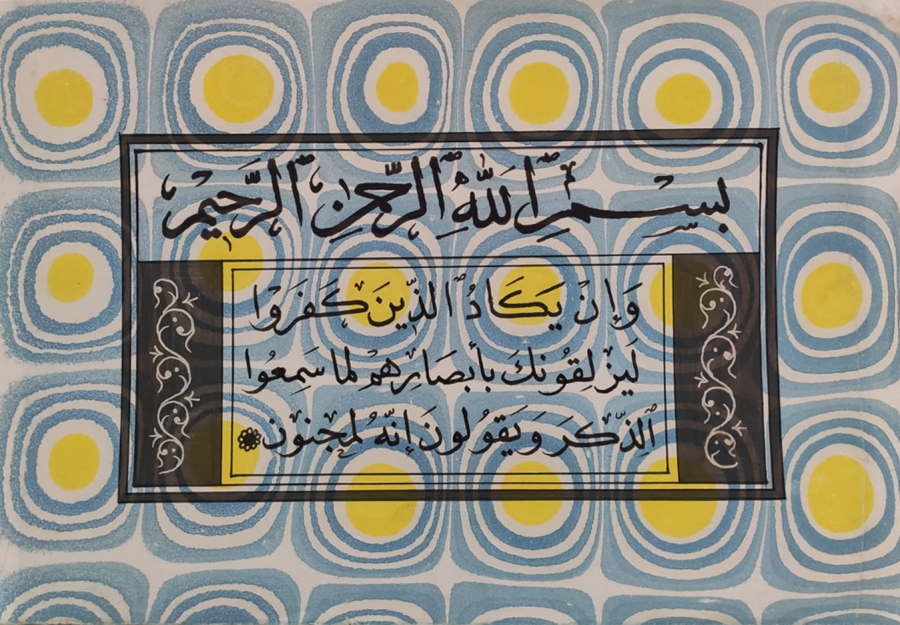 بِسْمِ ٱللَّهِ ٱلرَّحْمَٰنِ ٱلرَّحِيمِ
وَإِنْ يَكَادُ ٱلَّذِينَ كَفَرُوا
لَيُزْلِقُونَكَ بِأَبْصَارِهِمْ لَمَّا سَمِعُوا
ٱلذِّكْرَ وَيَقُولُونَ إِنَّهُ لَمَجْنُونٌ